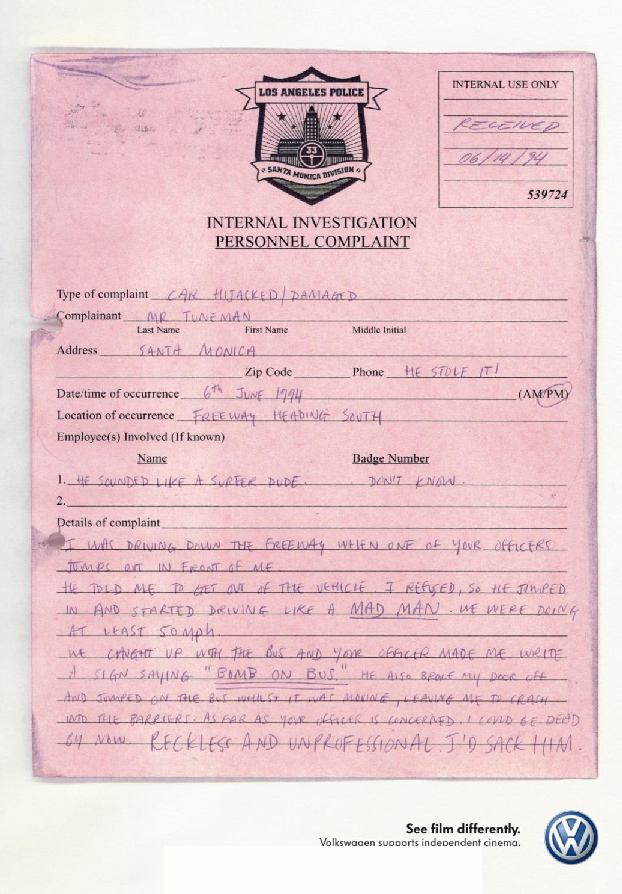 LOS ANGELES POLICE
33
SANTA MONICA DIVISION
INTERNAL USE ONLY
RECEIVED
06/14/94
539724
INTERNAL INVESTIGATION
PERSONNEL COMPLAINT
Type of complaint CAR HIJACKED/DAMAGED
Complainant MR TUNEMAN
Last Name First Name Middle Initial
Address SANTA MONICA
Zip Code Phone HE STOLE IT!
Date/time of occurrence 6th JUNE 1994 (AM/PM)
Location of occurrence FREEWAY HEADING SOUTH
Employee(s) Involved (If known)
Name Badge Number
1. HE SOUNDED LIKE A SURFER DUDE. DON'T KNOW.
2.
Details of complaint
I WAS DRIVING DOWN THE FREEWAY WHEN ONE OF YOUR OFFICERS
JUMPS OUT IN FRONT OF ME.
HE TOLD ME TO GET OUT OF THE VEHICLE I REFUSED, SO HE JUMPED
IN AND STARTED DRIVING LIKE A MAD MAN. WE WERE DOING
AT LEAST 50mph.
WE CAUGHT UP WITH THE BUS AND YOUR OFFICER MADE ME WRITE
A SIGN SAYING "BOMB ON BUS." HE ALSO BROKE MY DOOR OFF
AND JUMPED ON THE BUS WHILST IT WAS MOVING, LEAVING ME TO CRASH
INTO THE BARRIERS. AS FAR AS YOUR OFFICER IS CONCERNED, I COULD BE DEAD
BY NOW. RECKLESS AND UNPROFESSIONAL. I'D SACK HIM.
See film differently.
Volkswagen supports independent cinema.
VW